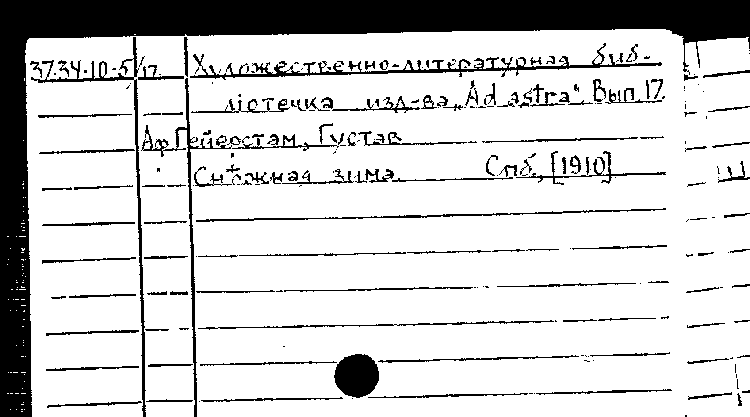 37.34.10-5/17 Художественно-литературная биб-
лiотечка изд-ва „Ad astra“. Вып. 17.
Аф Гейерстам, Густав
Снѣжная зима. Спб., [1910]